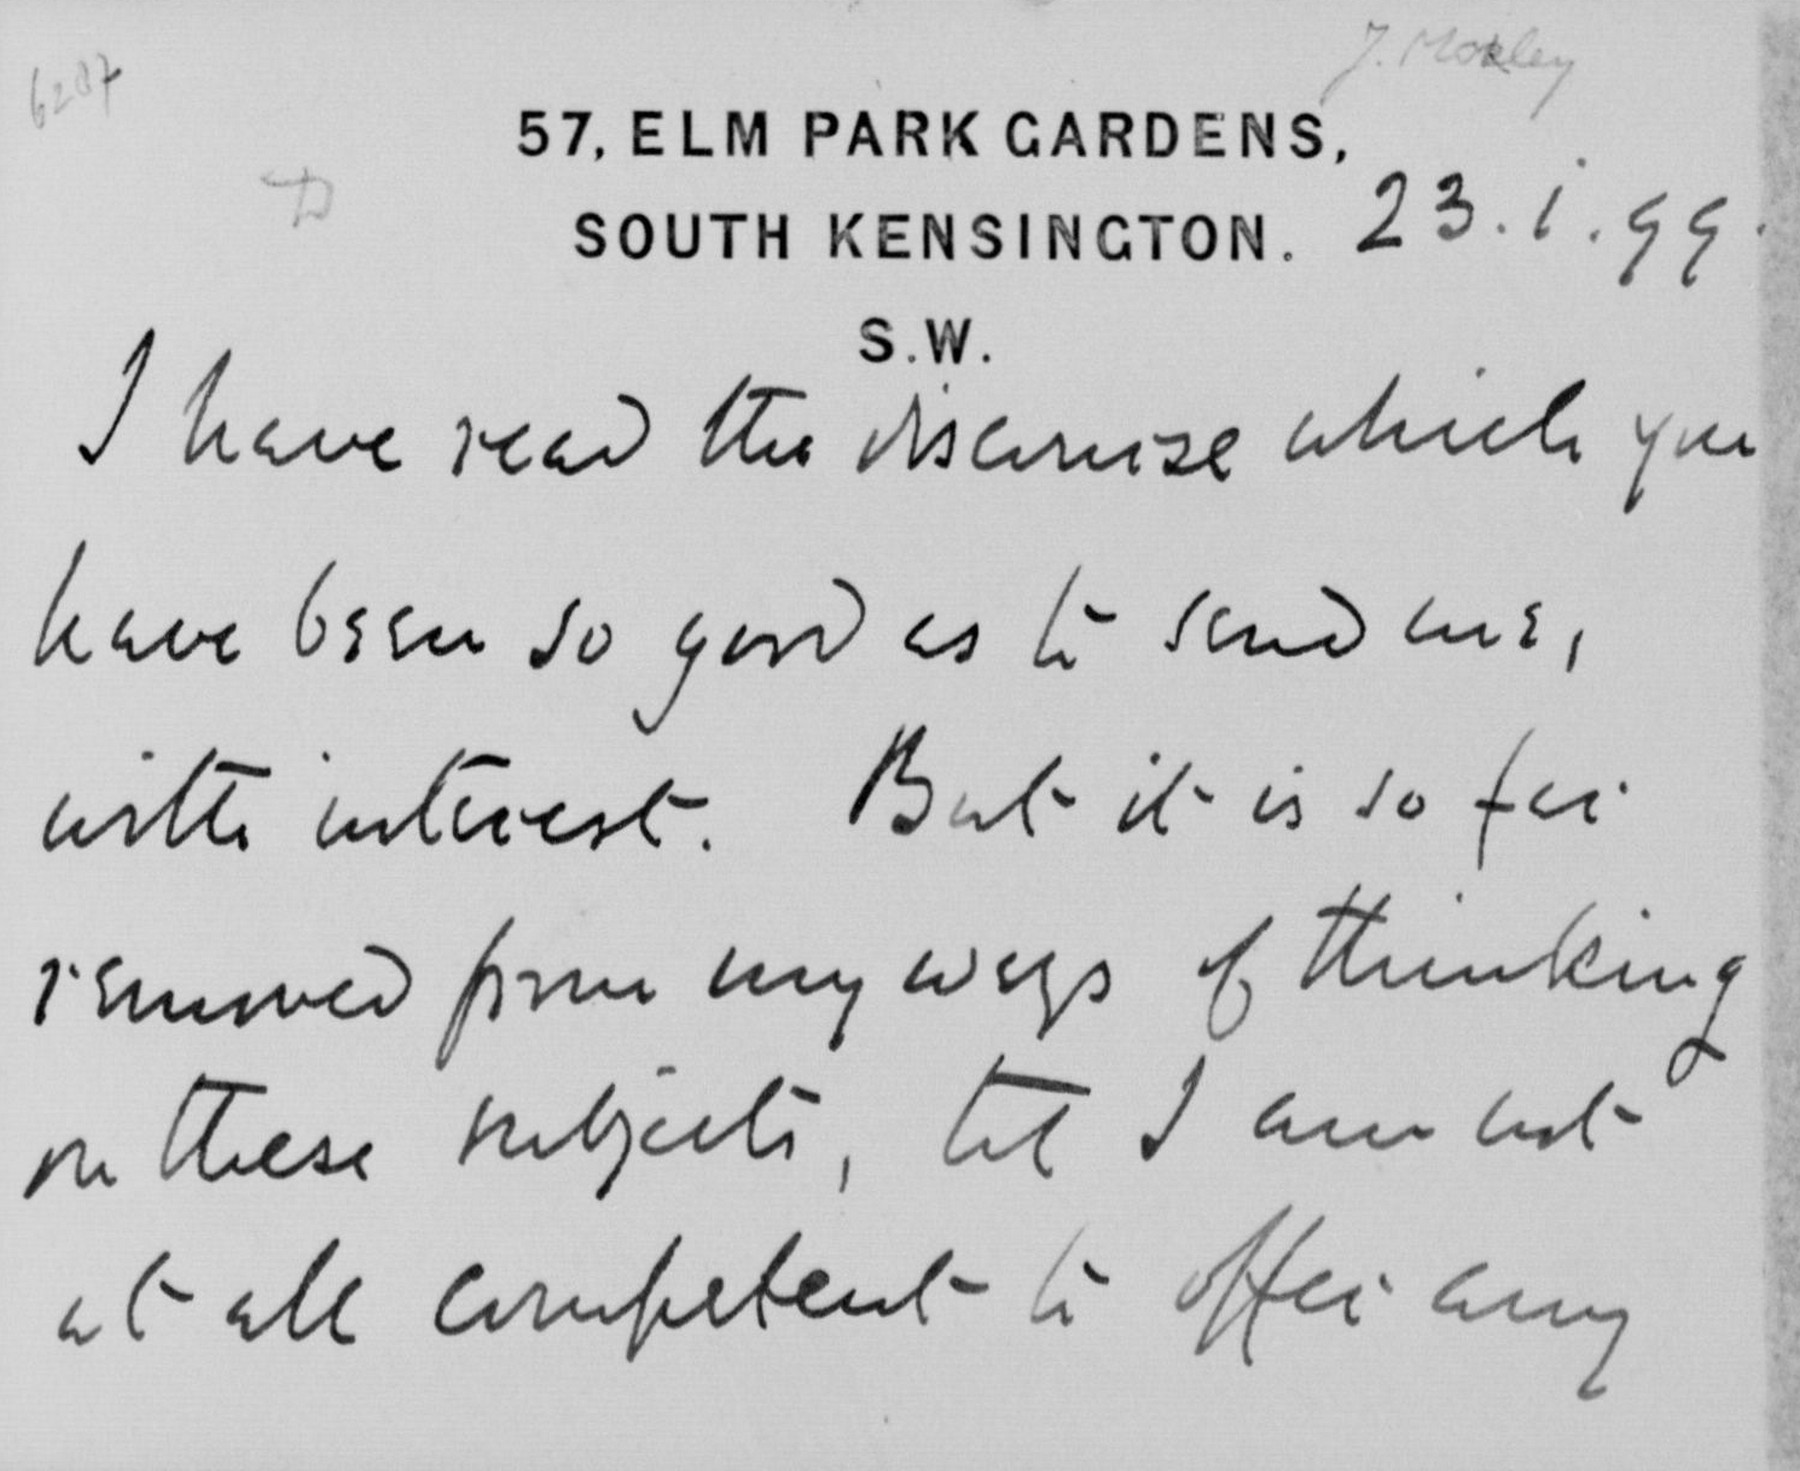 6207
J. Morley
57, ELM PARK GARDENS,
SOUTH KENSINGTON.
23.i.99.
S.W.
I have read the discourse which you
have been so good as to send me,
with interest. But it is so far
removed from my ways of thinking
on these subjects, tht I am not
at all competent to offer any